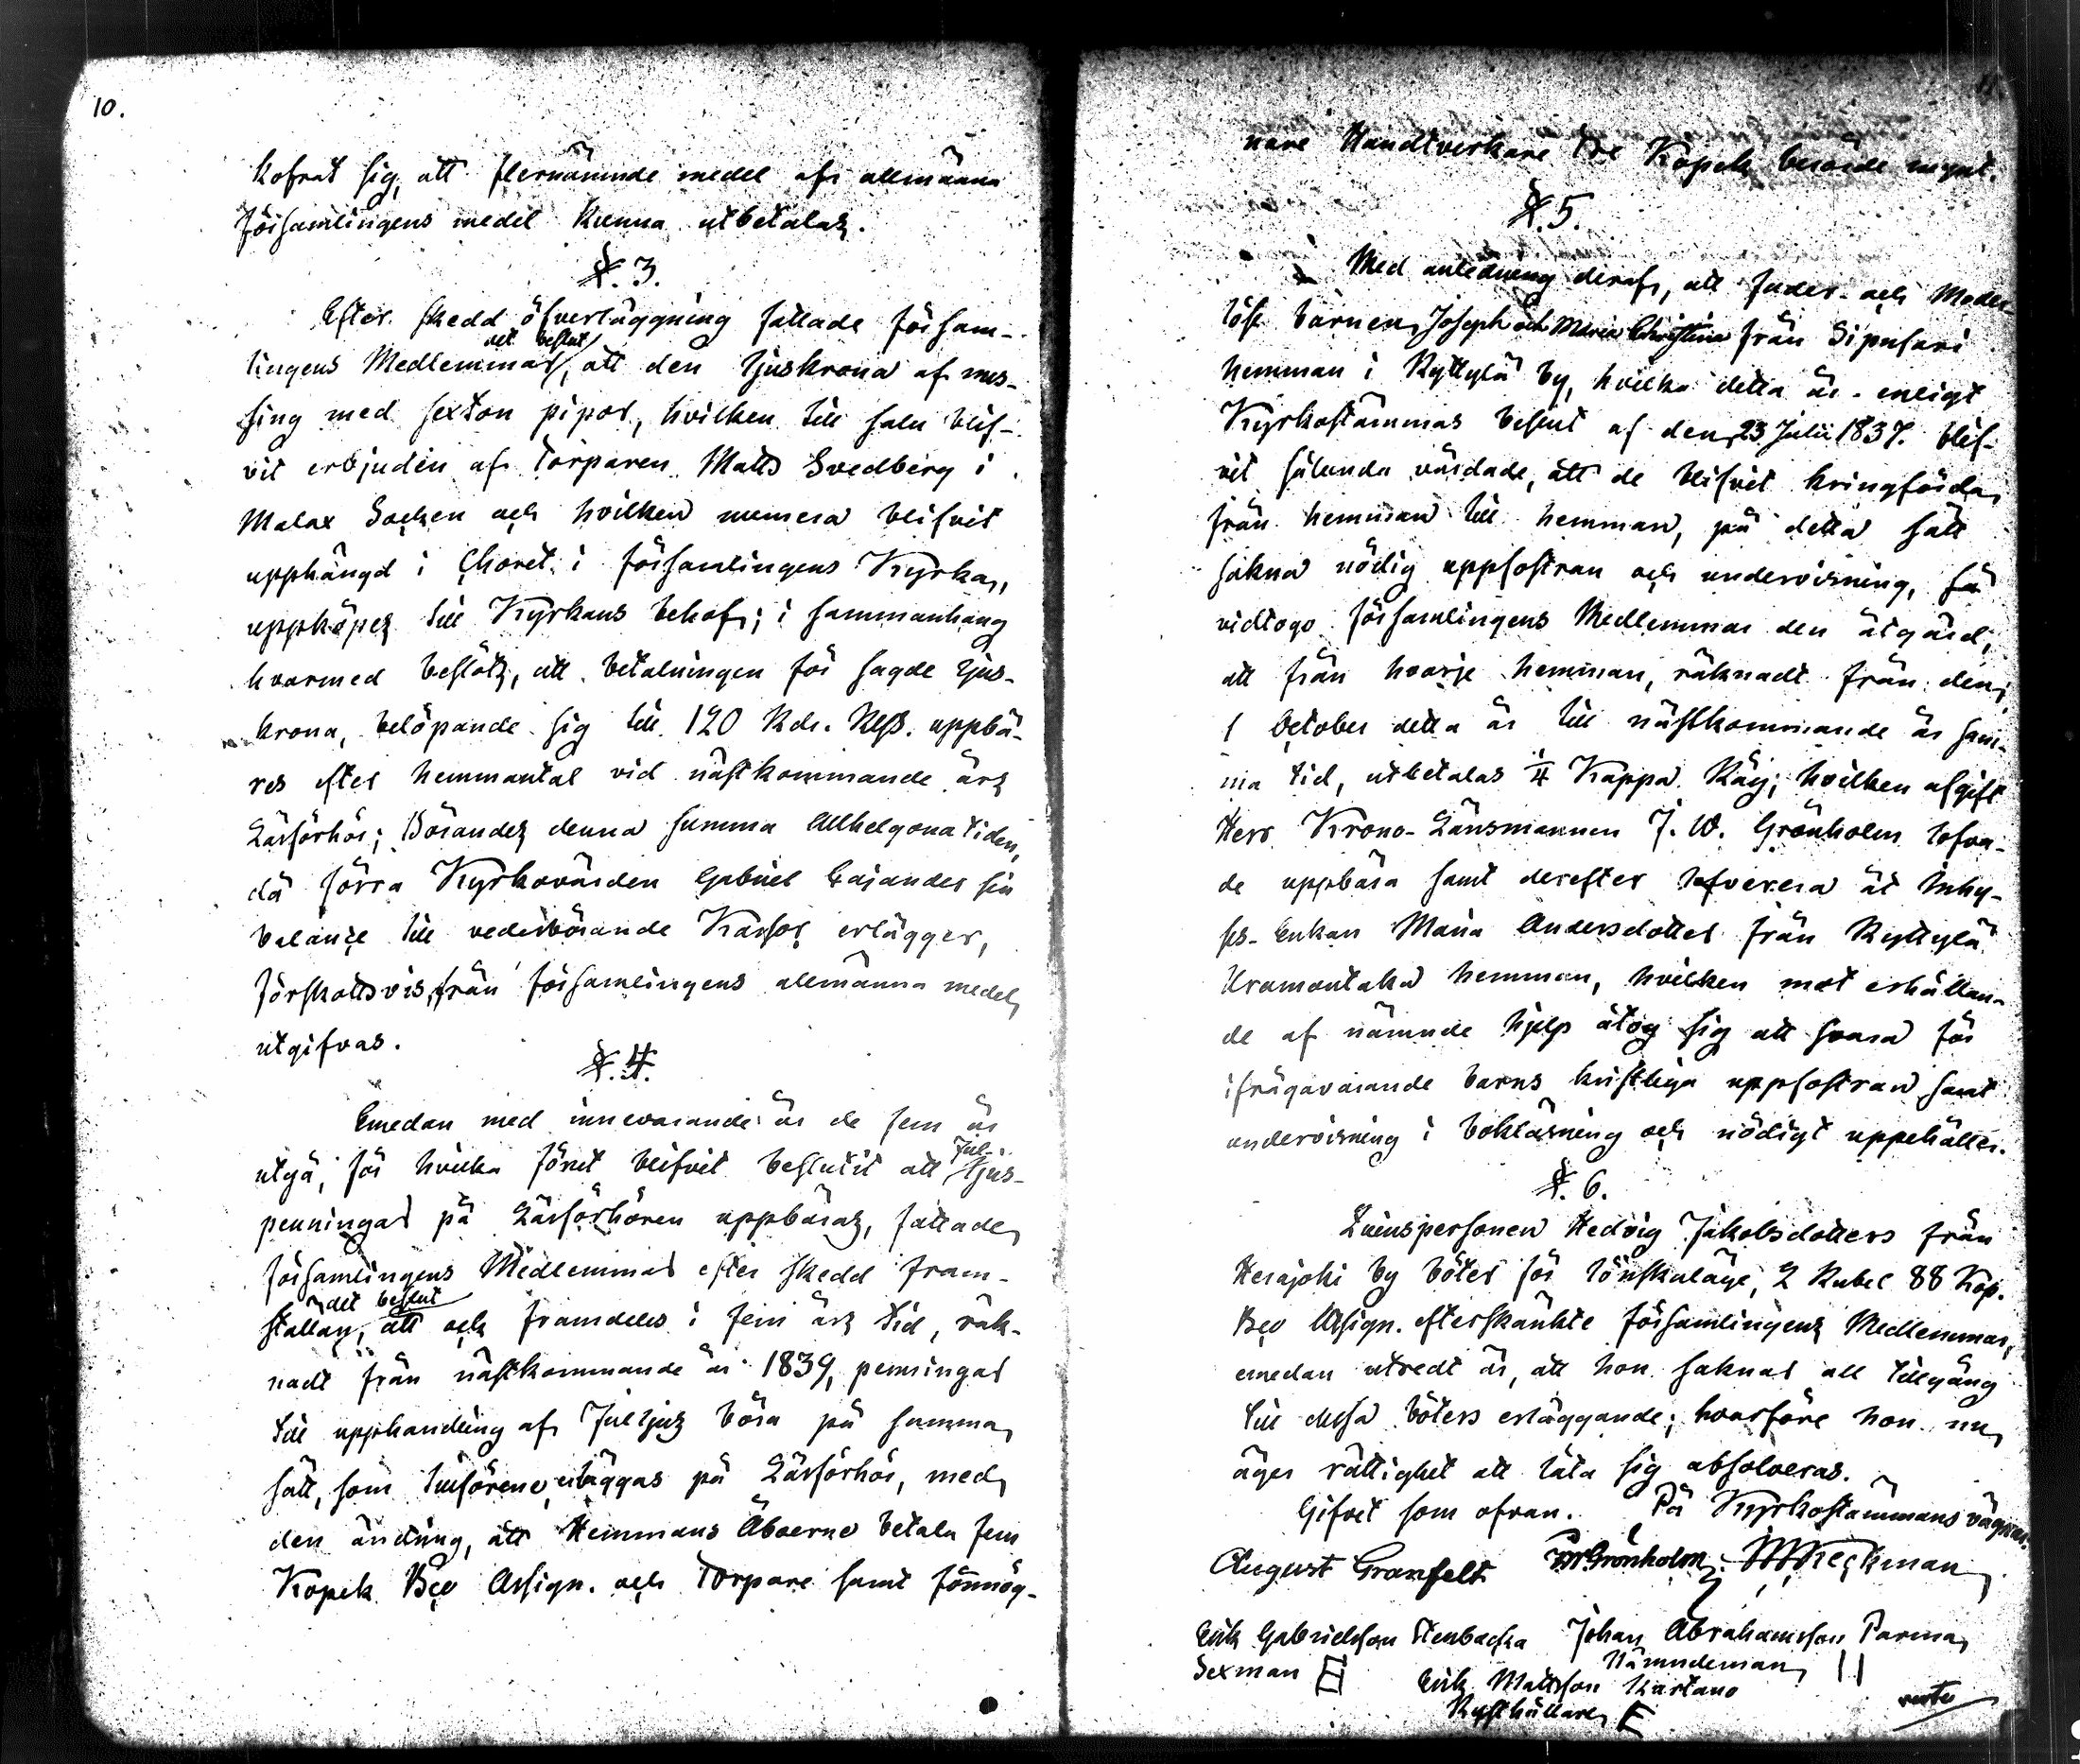 10.
kofrat sig, att flernämnde medel af allmänna
församlingens medel kunna utbetalas.
§. 3.
Efter skedd öfverläggning fattade försam-
lingens Medlemmar det beslut, att den ljuskrona af mes-
sing med sexton pipor, hvilken till salu blif-
vit erbjuden af Torparen Matts Svedberg i
Malax Socken och hvilken numera blifvit
upphängd i Choret i församlingens Kyrka,
uppköpes till Kyrkans behof; i sammanhang
hvarmed beslöts, att betalningen för sagde ljus-
krona, belöpande sig till 120 Rdr. Rgs. uppbä-
res efter hemmantal vid nästkommande års
Läsförhör; Börandes denna summa Allhelgona tiden,
då förra Kyrkovärden Gabriel Cajander sin
balance till vederbörande Kassor erlägger,
förskottsvis från församlingens allmänna medel
utgifvas.
§. 4.
Emedan med innevarande år de fem år
utgå, för hvilka förut blifvit beslutit att Jul-ljus-
penningar på Läsförhören uppbäras, fattade
församlingens Medlemmar efter skedd fram-
ställan, det beslut att och framdeles i fem års tid, räk-
nadt från nästkommande år 1839, penningar
till upphandling af Julljus böra på samma
sätt, som tillförene, erläggas på Läsförhör, med
den ändring, att Hemmans Åboerne betala fem
Kopek Bco Assign. och Torpare samt förmög-
nare Handtverkare tre Kopek berörde mynt.
§. 5.
Med anledning deraf, att fader- och Moder-
lösa barnen Joseph och Maria Christina från Sipusari
hemman i Ryttylä by, hvilka detta år enligt
Kyrkostämmas beslut af den 23 Julii 1837. blif-
vit sålunda vårdade, att de blifvit kringförda
från hemman till hemman, på detta sätt
sakna nödig uppfostran och undervisning, så
vidtogo församlingens Medlemmar den åtgärd,
att från hvarje hemman, räknadt från den
1 October detta år till nästkommande år sam-
ma tid, utbetalas 1/4 Kappa Råg; hvilken afgift
Herr Krono-Länsmannen J. W. Grönholm lofva-
de uppbära samt derefter lefverera åt Inhy-
ses-Enkan Maria Andersdotter från Ryttylä
Uramontaka hemman, hvilken mot erhållan-
de af nämnde hjelp åtog sig att svara för
ifrågavarande barns kristliga uppfostran samt
undervisning i bokläsning och nödigt uppehälle.
§. 6.
Qvinspersonen Hedvig Jakobsdotters från
Herajoki by böter för lönskaläge, 2 Rubel 88 Kop.
Bco Assign. efterskänkte församlingens Medlemmar,
emedan utredt är, att hon saknar all tillgång
till dessa böters erläggande; hvarföre hon nu
äger rättighet att låta sig absolveras.
Gifvet som ofvan. På Kyrkostämmans vägnar.
August Granfelt JW Grönholm Reckman
Erik Gabrielsson Stenbacka Johan Abrahamsson Parma
Sexman Nämndeman
Erik Mattsson Kartano
Rusthållare